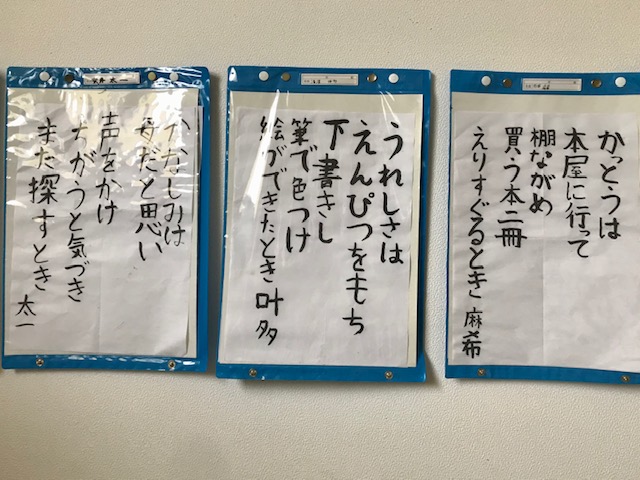 かっとうは
本屋に行って
棚ながめ
買う本二冊
えりすぐるとき 麻希
うれしさは
えんぴつをもち
下書きし
筆で色つけ
絵ができたとき 叶多
かなしみは
母だと思い
声をかけ
ちがうと気づき
また探すとき 太一
太一